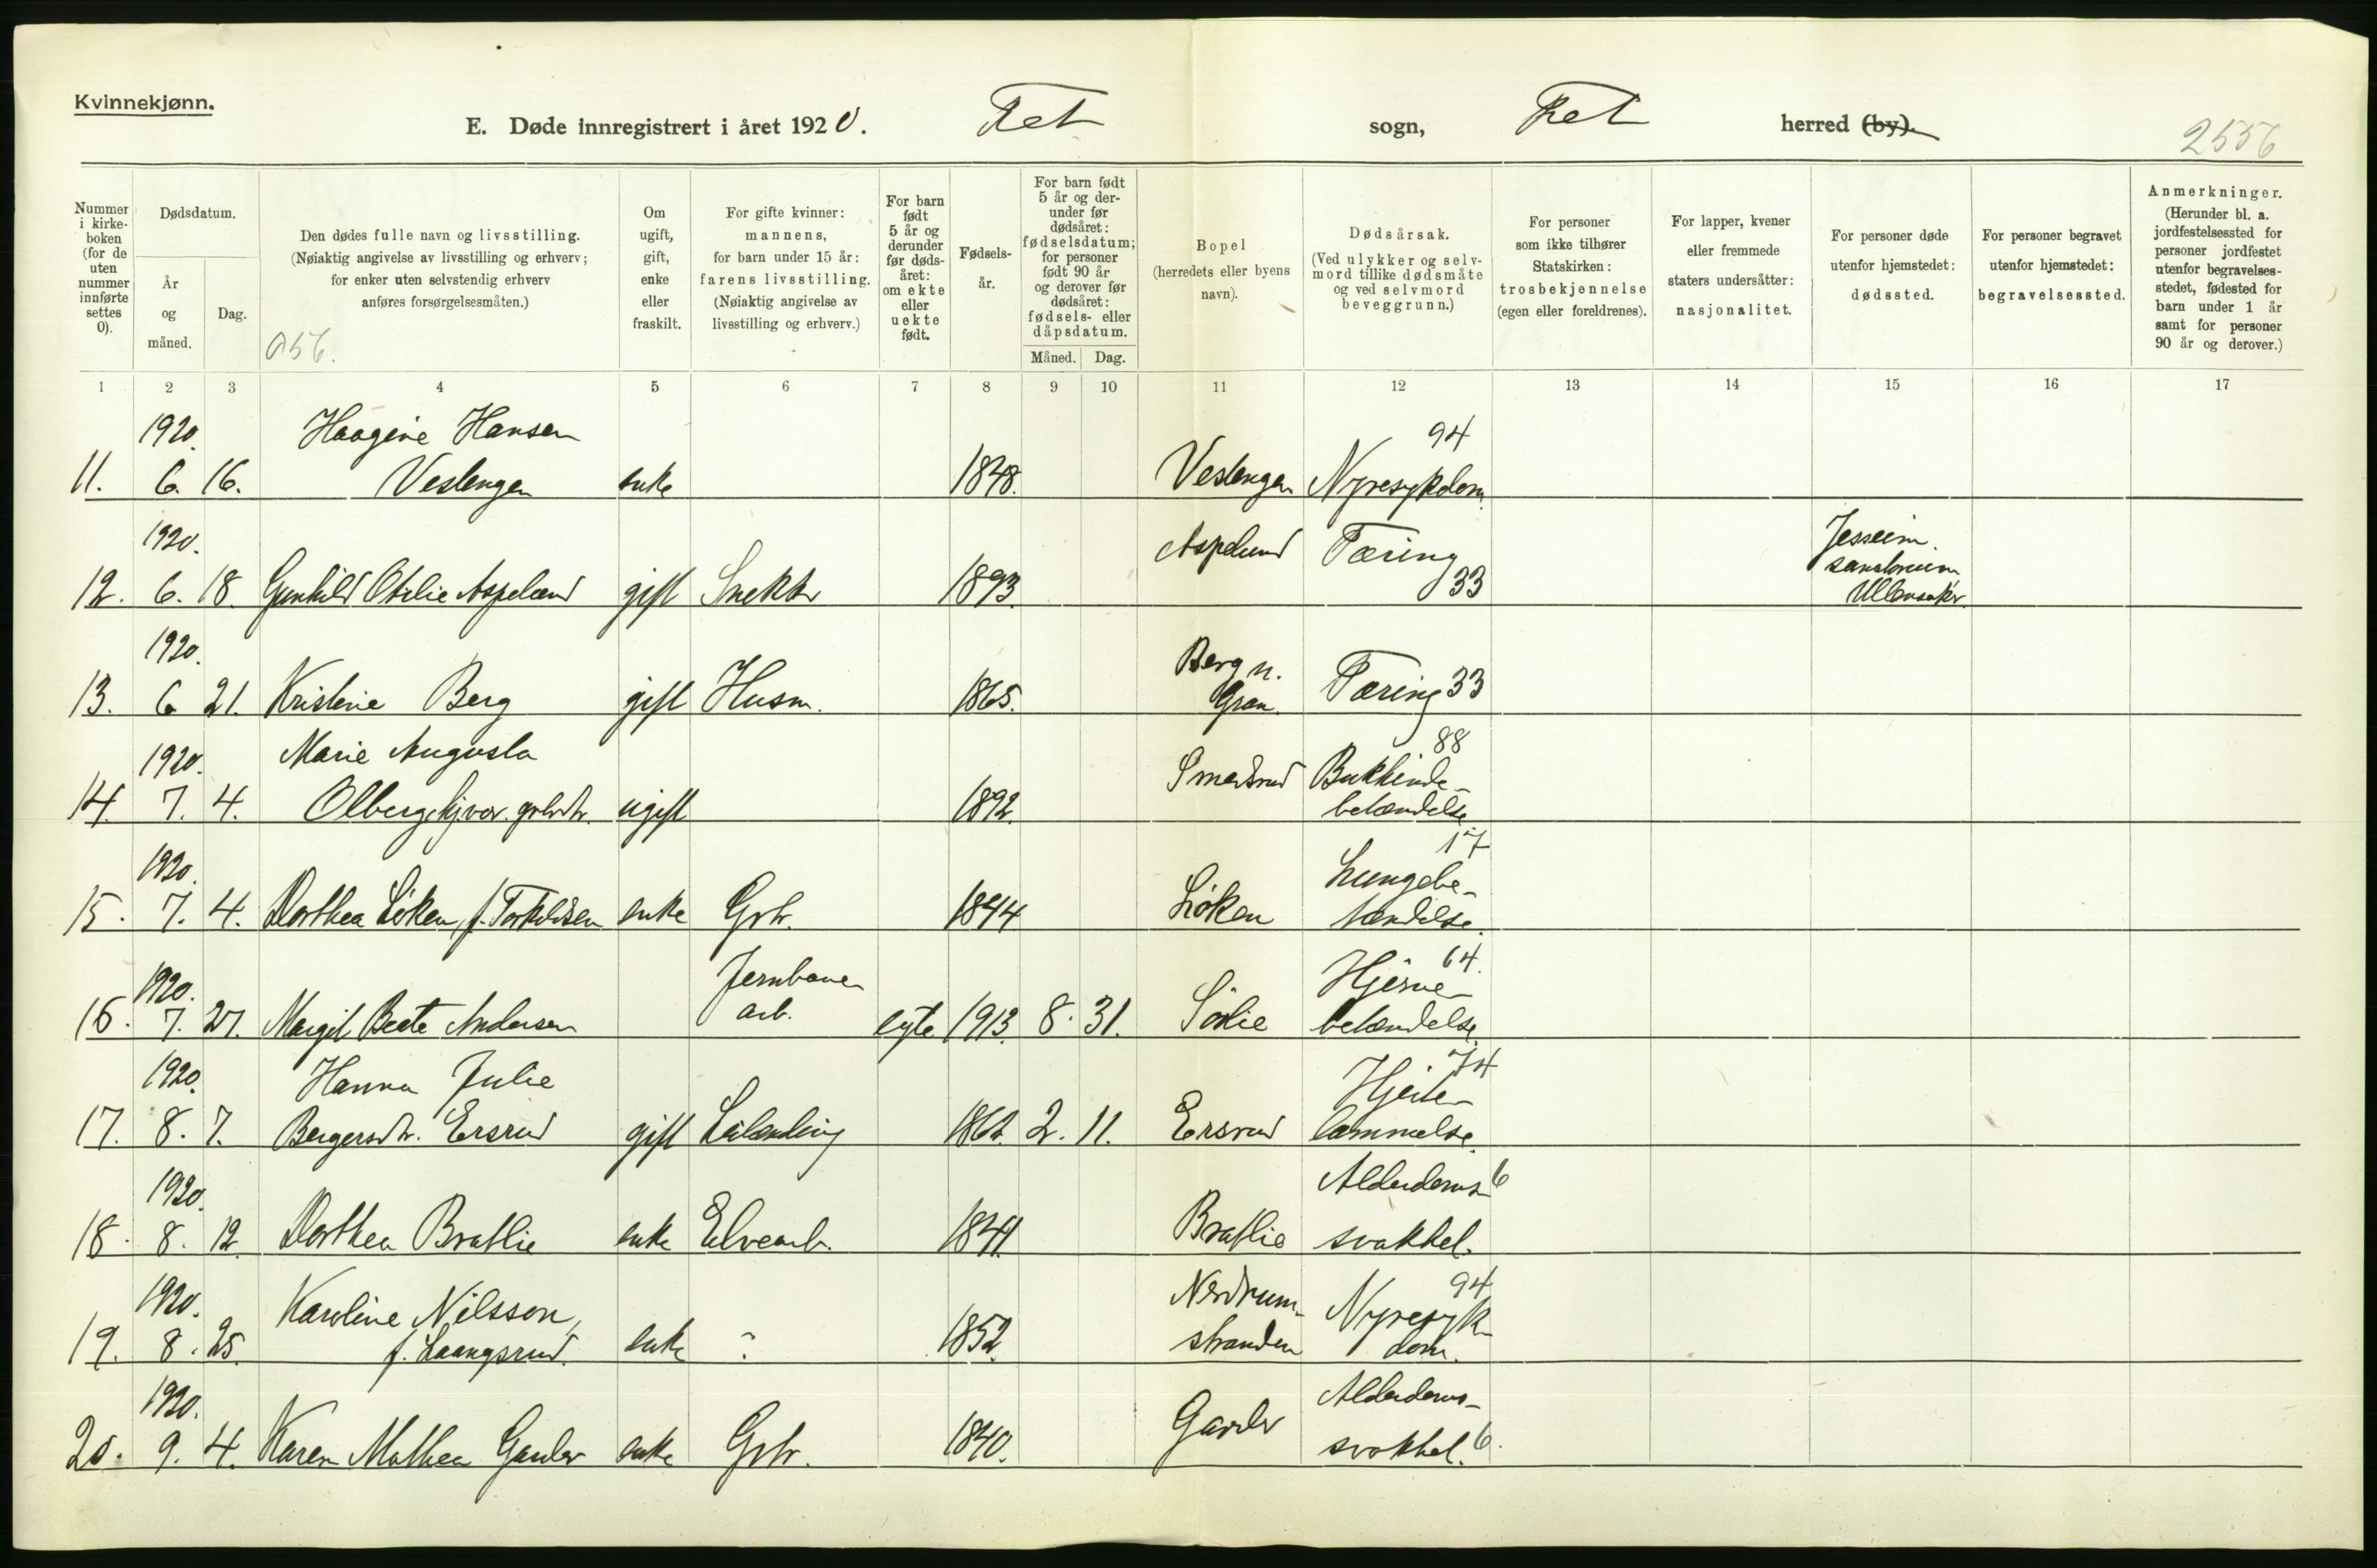 Kvinnekjønn.
E. Døde innregistrert i året 1920. Fet sogn, Fet herred (by).
2556
Nummer i kirkeboken (for de uten nummer innførte settes 0).
Dødsdatum.
År og måned.
Dag.
Den dødes fulle navn og livsstilling.
(Nøiaktig angivelse av livsstilling og erhverv;
for enker uten selvstendig erhverv
anføres forsørgelsesmåten.)
056.
Om ugift, gift, enke eller fraskilt.
For gifte kvinner:
mannens,
for barn under 15 år:
farens livsstilling.
(Nøiaktig angivelse av
livsstilling og erhverv.)
For barn født 5 år og derunder før dødsåret: om ekte eller uekte født.
Fødselsår.
For barn født 5 år og derunder før dødsåret: fødselsdatum; for personer født 90 år og derover før dødsåret: fødsels- eller dåpsdatum.
Måned. Dag.
Bopel
(herredets eller byens
navn).
Dødsårsak.
(Ved ulykker og selvmord tillike dødsmåte og ved selvmord beveggrunn.)
For personer
som ikke tilhører
Statskirken:
trosbekjennelse
(egen eller foreldrenes).
For lapper, kvener
eller fremmede
staters undersåtter:
nasjonalitet.
For personer døde
utenfor hjemstedet:
dødssted.
For personer begravet
utenfor hjemstedet:
begravelsessted.
Anmerkninger.
(Herunder bl. a.
jordfestelsessted for
personer jordfestet
utenfor begravelses-
stedet, fødested for
barn under 1 år
samt for personer
90 år og derover.)
1 2 3 4 5 6 7 8 9 10 11 12 13 14 15 16 17
1920. Haagine Hansen 94
11. 6. 16. Veslengen enke 1848. Veslengen Nyresykdom
1920. Aspelund Tæring Jesseim sanatorium
12. 6. 18. Gunhild Otilie Aspelund gift Snekker 1893. 33 Ullensaker
1920. Berg n.
13. 6 21. Kristine Berg gift Husm. 1865. Gran. Tæring 33
1920. Marie Augusta Smedsrud Bukhinde- 88
14. 7. 4. Olberg ugift 1892. betændelse
1920. Lungebe- 17
15. 7. 4. Dorthea Løken, f. Torkildsen enke Grbr. 1844 Løken tændelse.
1920. Jernbane- Hjerne- 64.
16. 7. 27. Margit Beate Andersen arb. egte 1913. 8. 31. Sørlie betændelse.
1920. Hanna Julie Hjerte- 74
17. 8. 7. Bergersdtr. Ersrud gift Leilending 2. 11. Ersrud lammelse.
1920. Alderdoms- 6
18. 8. 12. Dorthea Bratlie enke Elvearb. 1841. Bratlie svakhet.
1920. Karoline Nilsson, Nerdrum- Nyresyk- 94
19. 8. 25. f. Laangsrud. enke - 1852. stranden dom.
1920. Alderdoms-
20. 9. 4. Karen Mathea Garder enke Grbr. 1840. Garder svakhet. 6.